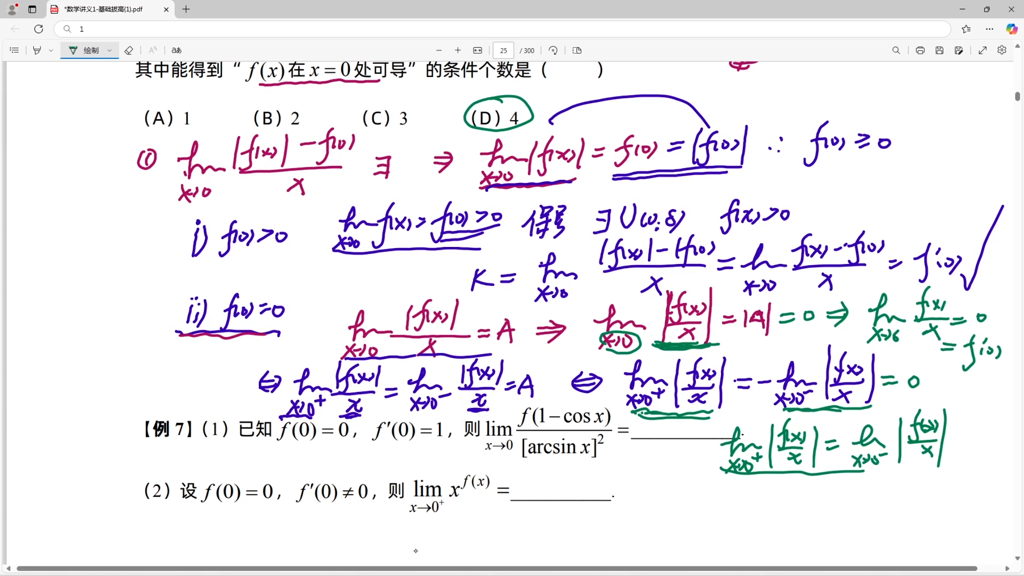 *数学讲义1-基础拔高(1).pdf
1
绘制
25 / 300
其中能得到“ f(x)在 x=0处可导”的条件个数是（ ）
(A) 1 (B) 2 (C) 3 (D) 4
① lim x→0 |f(x)|-f(0) / x ∃ ⇒ lim x→0 |f(x)| = f(0) = |f(0)| ∴ f(0) ≥ 0
i) f(0)>0 lim x→0 f(x) = f(0) > 0 保号 ∃ U(0,δ) f(x)>0
K = lim x→0 |f(x)|-|f(0)| / x = lim x→0 f(x)-f(0) / x = f'(0) √
ii) f(0)=0 lim x→0 |f(x)| / x = A ⇒ lim x→0 |f(x)/x| = |A| = 0 ⇒ lim x→0 f(x)/x = 0
= f'(0)
⇔ lim x→0⁺ |f(x)|/x = lim x→0⁻ |f(x)|/x = A ⇔ lim x→0⁺ |f(x)/x| = - lim x→0⁻ |f(x)/x| = 0
【例 7】(1) 已知 f(0)=0, f′(0)=1, 则 lim x→0 f(1−cos x) / [arcsin x]² = ________.
lim x→0⁺ |f(x)/x| = lim x→0⁻ |f(x)/x|
(2) 设 f(0)=0, f′(0)≠0, 则 lim x→0⁺ x^f(x) = ________.